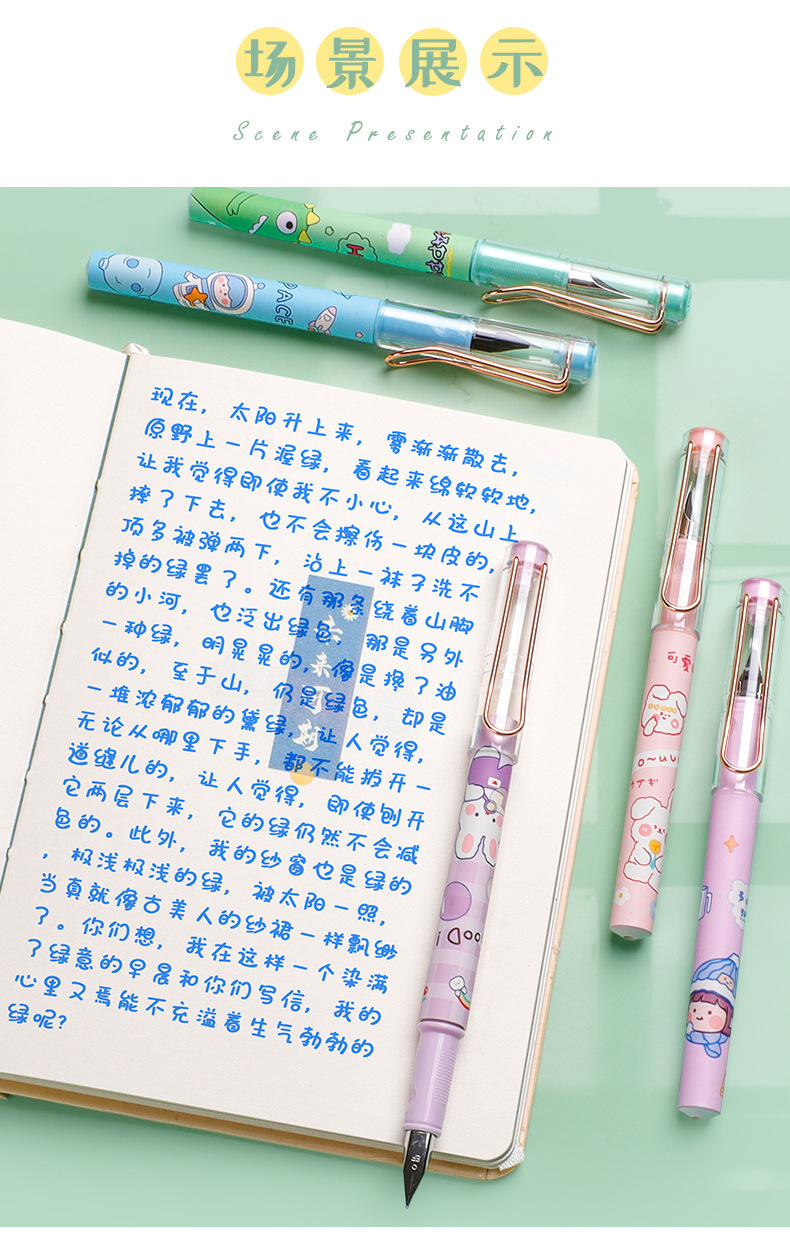 场景展示
Scene Presentation
HAPP
PACE
现在，太阳升上来，雾渐渐散去，
原野上一片渥绿，看起来绵软软地，
让我觉得即使我不小心，从这山上
摔了下去，也不会擦伤一块皮的，
顶多被弹两下，沾上一袜子洗不
掉的绿罢了。还有那条绕着山脚
的小河，也泛出绿色，那是另外
一种绿，明晃晃的，像是搀了油
似的，至于山，仍是绿色，却是
一堆浓郁郁的黛绿，让人觉得，
无论从哪里下手，都不能拨开一
道缝儿的，让人觉得，即使刨开
它两层下来，它的绿仍然不会减
色的。此外，我的纱窗也是绿的
，极浅极浅的绿，被太阳一照，
当真就像古美人的纱裙一样飘缈
了。你们想，我在这样一个染满
了绿意的早晨和你们写信，我的
心里又焉能不充溢着生气勃勃的
绿呢？
可爱
o~uu